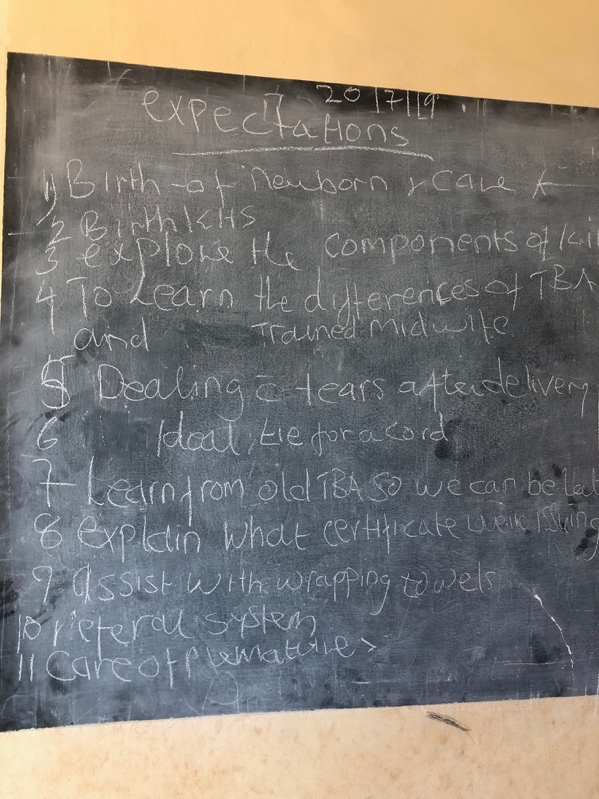 20/7/19
expectations
1) Birth of Newborn & Care
2 Birth kits
3 explore the components of
4 To Learn the differences of TBA
and Trained midwife
5 Dealing c̄ tears after delivery
6 Ideal tie for a cord
7 Learn from old TBA so we can be
8 explain what certificate
9 Assist with wrapping towels
10 referal system
11 Care of